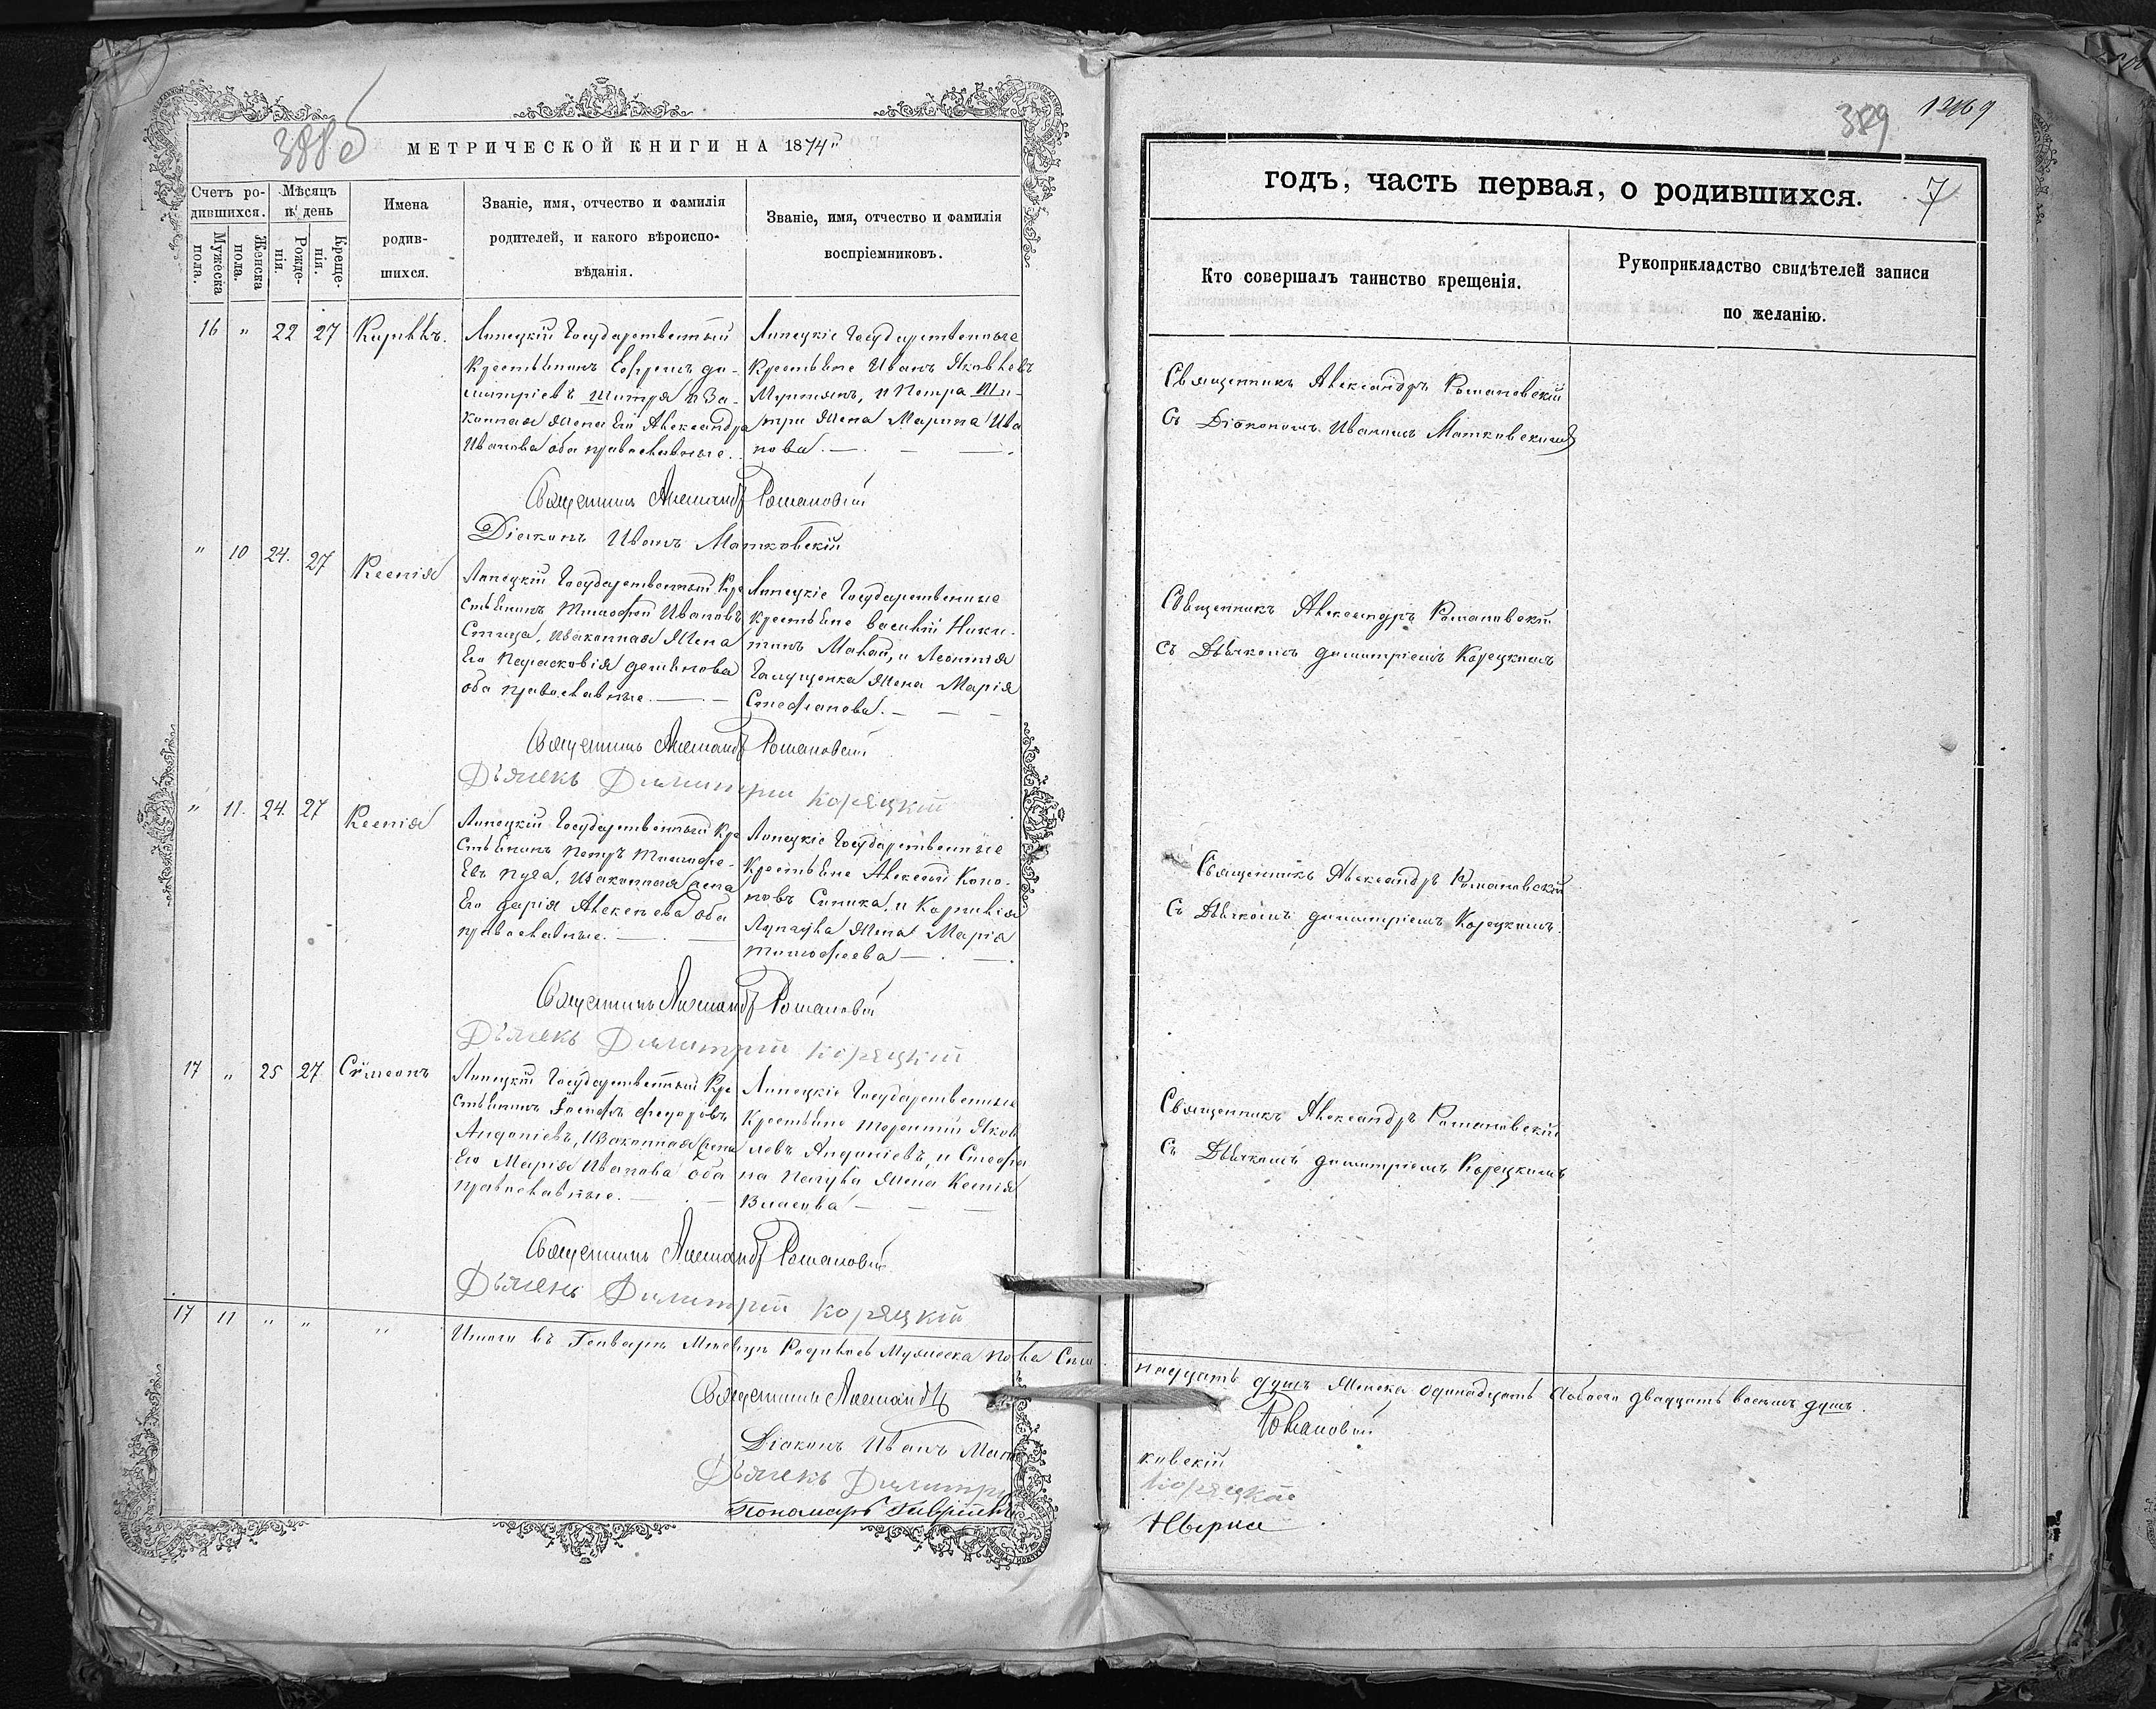 388б
МЕТРИЧЕСКОЙ КНИГИ НА 1874й
Счетъ ро-
дившихся.
Мѣсяцъ
и день
Мужеска
пола.
Женска
пола.
Рожде-
нія.
Креще-
нія.
Имена
родив-
шихся.
Званіе, имя, отчество и фамилія
родителей, и какого вѣроиспо-
вѣданія.
Званіе, имя, отчество и фамилія
воспріемниковъ.
16 " 22 27 Кириллъ.
Липецкій Государственный
Крестьянинъ Ефремъ Ди-
митріевъ и За-
конная Жена Его Александра
Иванова оба православные.
Липецкіе Государственные
Крестьяне Иванъ Яковлевъ
Мунтянъ, и Петра
Жена Марина Ива
нова.
Священникъ Александръ Романовскій
Діаконъ Иванъ Матковскій
" 10 24. 27 Ксенія
Липецкій Государственный Кре
стьянинъ Тимофей Ивановъ
изаконная Жена
Его Парасковія
оба православные.
Липецкіе Государственные
Крестьяне Василій Ники-
тинъ и Леонтія
Жена Марія
Стефанова.
Священникъ Александръ Романовскій
Дьячекъ Димитрій Корецкій
" 11. 24. 27 Ксенія
Липецкій Государственный Кре
стьянинъ Петръ Тимофе-
евъ Изаконная Жена
Его Дарія Алексѣева оба
православные.
Липецкіе Государственные
Крестьяне Алексѣй Коно-
новъ и Корнилія
Жена Марія
Тимофеева
Священникъ Александръ Романовскій
Дьячекъ Димитрій Корецкій
17 " 25 27 Сѵмеонъ
Липецкій Государственный Кре
стьянинъ Іосифъ Федоровъ
Андоніевъ, Изаконная Жена
Его Марія Иванова оба
православные.
Липецкіе Государственные
Крестьяне Терентій Яков
левъ Андоніевъ, и Стефа
на Жена Ксенія
Власова
Священникъ Александръ Романовскій
Дьячекъ Димитрій Корецкій
17 11 " " "
Итого въ Генварѣ Мѣсяцѣ Родилось Мужеска пола Сем
Священникъ Александръ
Діаконъ Иванъ Мат
Дьячекъ Димитрі
Пономарь Гавріилъ
389
1269
годъ, часть первая, о родившихся.
7
Кто совершалъ таинство крещенія.
Рукоприкладство свидѣтелей записи
по желанію.
Священникъ Александръ Романовскій
Съ Діакономъ Иваномъ Матковскимъ
Священникъ Александръ Романовскій
Съ Дьячкомъ Димитріемъ Корецкимъ
Священникъ Александръ Романовскій
Съ Дьячкомъ Димитріемъ Корецкимъ.
Священникъ Александръ Романовскій
Съ Дьячкомъ Димитріемъ Корецкимъ
надцать душъ Женска одинадцать Обоего двадцать восемъ душъ.
Романовскій
ковскій
Корецкій